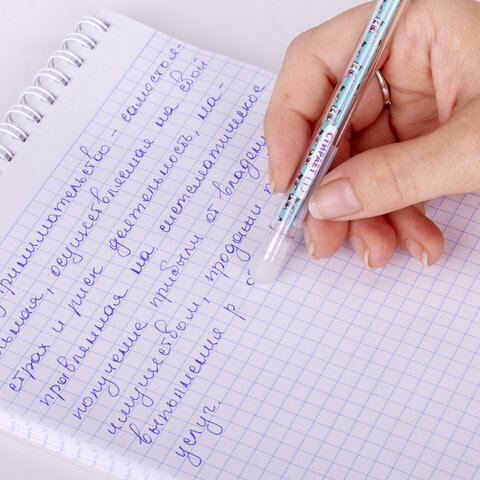 Предпринимательство - самостоя-
ельная, осуществляемая на свой
страх и риск деятельность, на-
правленная на систематическое
получение прибыли от владен
имуществом, продажи
выполнения р
услуг.
СТИРАЕТ